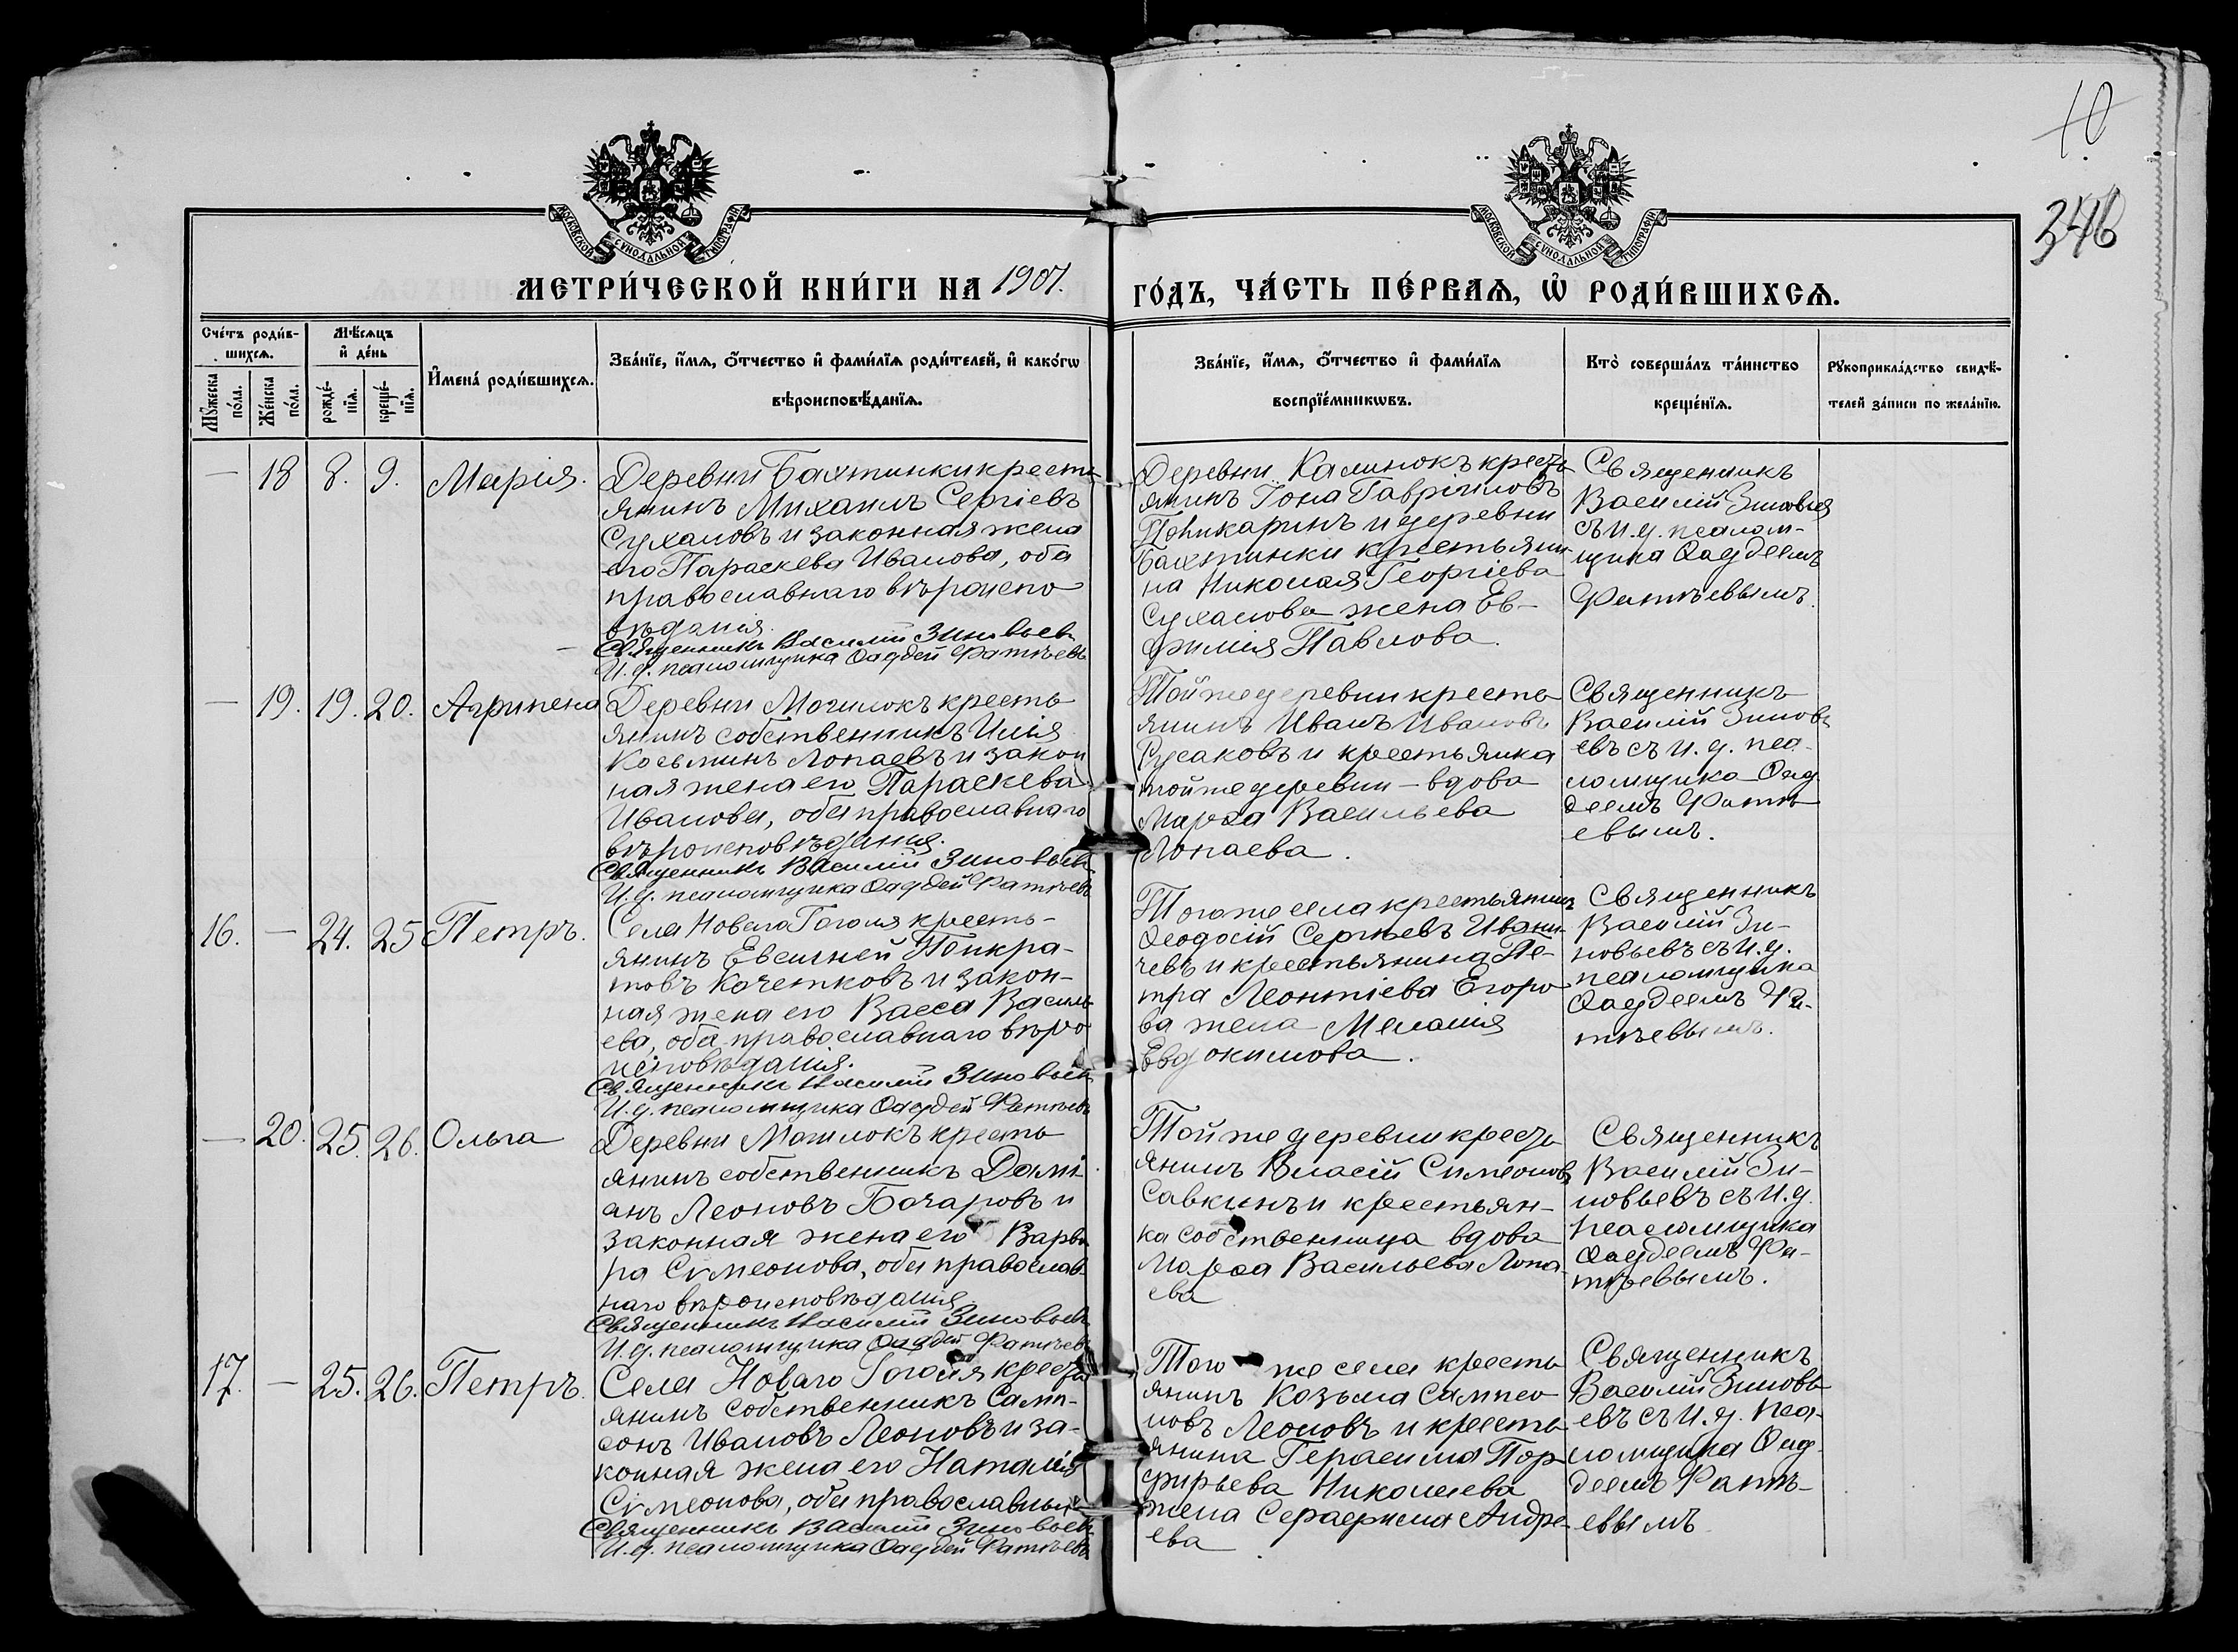 10
346
МОСКОВСКОЙ СѴНОДАЛЬНОЙ ТИПОГРАФІИ
МОСКОВСКОЙ СѴНОДАЛЬНОЙ ТИПОГРАФІИ
МЕТРИ́ЧЕСКОЙ КНИ́ГИ НА 1907.
ГО́ДЪ, ЧА́СТЬ ПЕ́РВАѦ, Ѡ҆ РОДИ́ВШИХСѦ.
Сче́тъ роди́в-
шихсѧ.
Мꙋ́жеска по́ла.
Же́нска по́ла.
Мѣ́сѧцъ
и҆ де́нь
рожде́-
нїѧ.
креще́-
нїѧ.
И҆мена̀ роди́вшихсѧ.
Зва́нїе, и҆́мѧ, ѻ҆́тчество и҆ фами́лїѧ роди́телей, и҆ како́гѡ
вѣроисповѣ́данїѧ.
Зва́нїе, и҆́мѧ, ѻ҆́тчество и҆ фами́лїѧ
воспрїе́мникѡвъ.
Кто̀ соверша́лъ та́инство
креще́нїѧ.
Рꙋкоприкла́дство свидѣ́-
телей за́писи по жела́нїю.
— 18 8. 9. Марія.
Деревни Бахтинки кресть
янинъ Михаилъ Сергіевъ
Сухановъ и законная жена
его Параскева Иванова, оба
православнаго вѣроиспо
вѣданія.
Священникъ Василій Зиновьевъ
И. д. псаломщика Ѳаддей Фатѣевъ
Деревни Калинокъ кресть
янинъ Іона Гавріиловъ
и деревни
Бахтинки крестьяни
на Николая Георгіева
Суханова жена Ев-
фимія Павлова.
Священникъ
Василій Зиновьев
съ и. д. псалом-
щика Ѳаддеемъ
Фатѣевымъ.
— 19. 19. 20. Агрипена
Деревни Могилокъ кресть
янинъ собственникъ Илія
Косьминъ Лопаевъ и закон
ная жена его Параскева
Иванова, оба православнаго
вѣроисповѣданія.
Священникъ Василій Зиновьевъ
И. д. псаломщика Ѳаддей Фатѣевъ
Той же деревни кресть
янинъ Иванъ Ивановъ
Русаковъ и крестьянка
той же деревни — вдова
Марѳа Васильева
Лопаева.
Священникъ
Василій Зиновь
евъ съ и. д. пса-
ломщика Ѳад
деемъ Фатѣ
евымъ.
16. — 24. 25 Петръ.
Села Новаго Гоголя кресть-
янинъ Евсигней Панкра-
товъ Кочетковъ и закон-
ная жена его Васса Василь
ева, оба православнаго вѣро
исповѣданія.
Священникъ Василій Зиновьевъ
И. д. псаломщика Ѳаддей Фатѣевъ
Того же села крестьянинъ
Ѳеодосій Сергѣевъ Ивани-
чевъ и крестьянина Пе-
тра Леонтіева Егоро
ва жена Меланія
Евдокимова.
Священникъ
Василій Зи-
новьевъ съ и. д.
псаломщика
Ѳаддеемъ Фа-
тѣевымъ.
— 20. 25. 26. Ольга
Деревни Могилокъ кресть
янинъ собственникъ Домі-
анъ Леоновъ Бочаровъ и
законная жена его Варва
ра Сѵмеонова, оба православ
наго вѣроисповѣданія.
Священникъ Василій Зиновьевъ
И. д. псаломщика Ѳаддей Фатѣевъ
Той же деревни кресть
янинъ Власій Симеоновъ
Савкинъ и крестьян-
ка собственница вдова
Марѳа Васильева Лопа
ева
Священникъ
Василій Зи-
новьевъ съ и. д.
псаломщика
Ѳаддеемъ Фа-
тѣевымъ.
17. — 25. 26. Петръ.
Села Новаго Гоголя кресть
янинъ собственникъ Самп-
сонъ Ивановъ Леоновъ и за-
конная жена его Наталія
Сѵмеонова, оба православные
Священникъ Василій Зиновьевъ
И. д. псаломщика Ѳаддей Фатѣевъ
Того же села кресть
янинъ Козьма Сампсо
новъ Леоновъ и кресть
янина Герасима Пор
фирьева Николаева
жена Серафима Андре-
ева
Священникъ
Василій Зиновь
евъ съ и. д. пса-
ломщика Ѳад-
деемъ Фатѣ-
евымъ